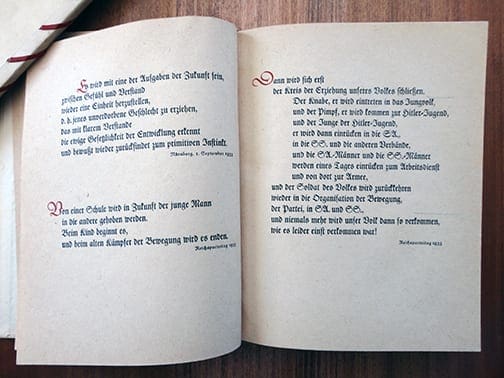 Es wird mit eine der Aufgaben der Zukunft sein,
zwischen Gefühl und Verstand
wieder eine Einheit herzustellen,
d. h. jenes unverdorbene Geschlecht zu erziehen,
das mit klarem Verstande
die ewige Gesetzlichkeit der Entwicklung erkennt
und bewußt wieder zurückfindet zum primitiven Instinkt.
Nürnberg, 1. September 1933
Von einer Schule wird in Zukunft der junge Mann
in die andere gehoben werden.
Beim Kind beginnt es,
und beim alten Kämpfer der Bewegung wird es enden.
Reichsparteitag 1935
Dann wird sich erst
der Kreis der Erziehung unseres Volkes schließen.
Der Knabe, er wird eintreten in das Jungvolk,
und der Pimpf, er wird kommen zur Hitler-Jugend,
und der Junge der Hitler-Jugend,
er wird dann einrücken in die SA,
in die SS. und die anderen Verbände,
und die SA-Männer und die SS.-Männer
werden eines Tages einrücken zum Arbeitsdienst
und von dort zur Armee,
und der Soldat des Volkes wird zurückkehren
wieder in die Organisation der Bewegung,
der Partei, in SA. und SS.,
und niemals mehr wird unser Volk dann so verkommen,
wie es leider einst verkommen war!
Reichsparteitag 1935